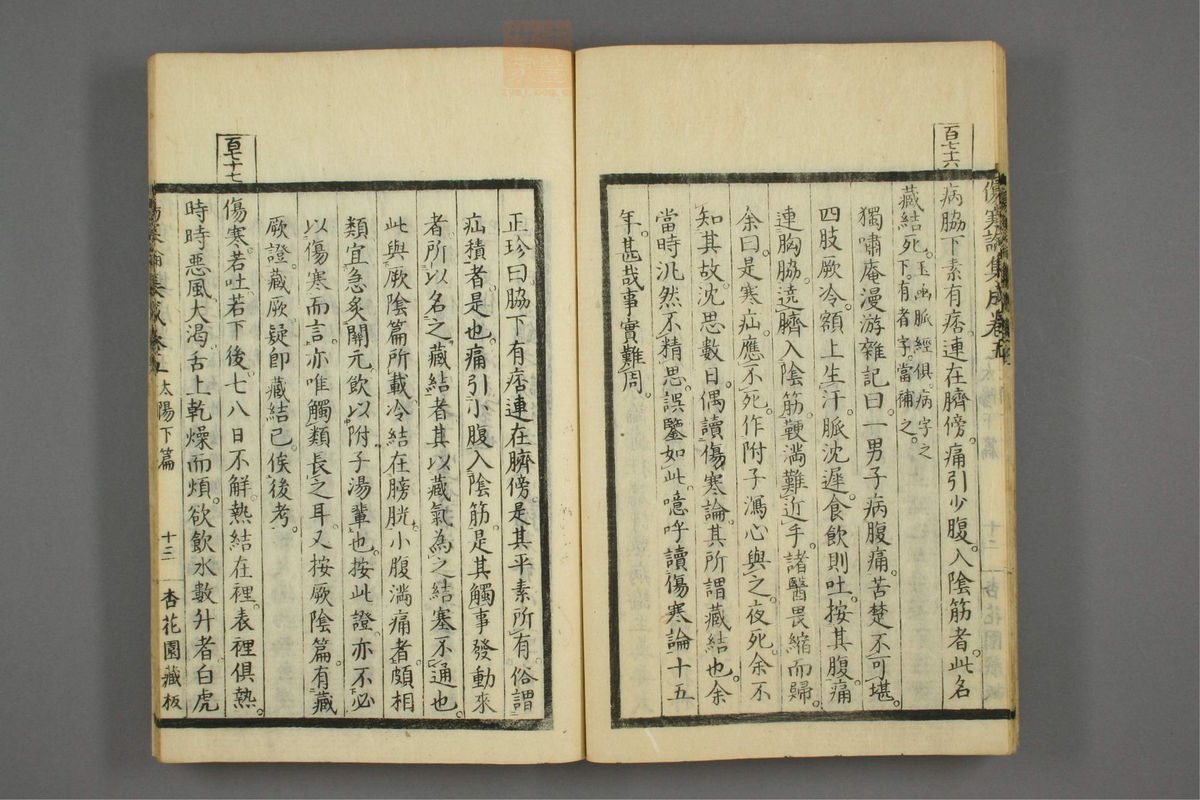 百七十六
病脇下素有痞。連在臍傍。痛引少腹。入陰筋者。此名
藏結。死。玉函脈經俱。病字之
下。有者字。當補之。
獨嘯庵漫游雜記曰。一男子病腹痛。苦楚不可堪。
四肢厥冷。額上生汗。脈沈遲。食飲則吐。按其腹。痛
連胸脇。遶臍入陰筋。鞕滿難近手。諸醫畏縮而歸。
余曰。是寒疝。應不死。作附子瀉心與之。夜死。余不
知其故。沈思數日。偶讀傷寒論。其所謂藏結也。余
當時汎然不精思。誤鑒如此。噫呼讀傷寒論十五
年。甚哉事實難周。
傷寒論集成卷五
正珍曰。脇下有痞。連在臍傍。是其平素所有。俗謂
疝積者。是也。痛引小腹。入陰筋。是其觸事發動來
者。所以名之藏結者。其以藏氣為之結塞不通也。
此與厥陰篇所載冷結在膀胱。小腹滿痛者。頗相
類。宜急炙關元。飲以附子湯輩也。按此證亦不必
以傷寒而言。亦唯觸類長之耳。又按厥陰篇。有藏
厥證。藏厥疑即藏結已。俟後考。
百七十七
傷寒。若吐若下後。七八日不解。熱結在裡。表裡俱熱。
時時惡風大渴。舌上乾燥而煩。欲飲水數升者。白虎
太陽下篇 十三 杏花園藏板